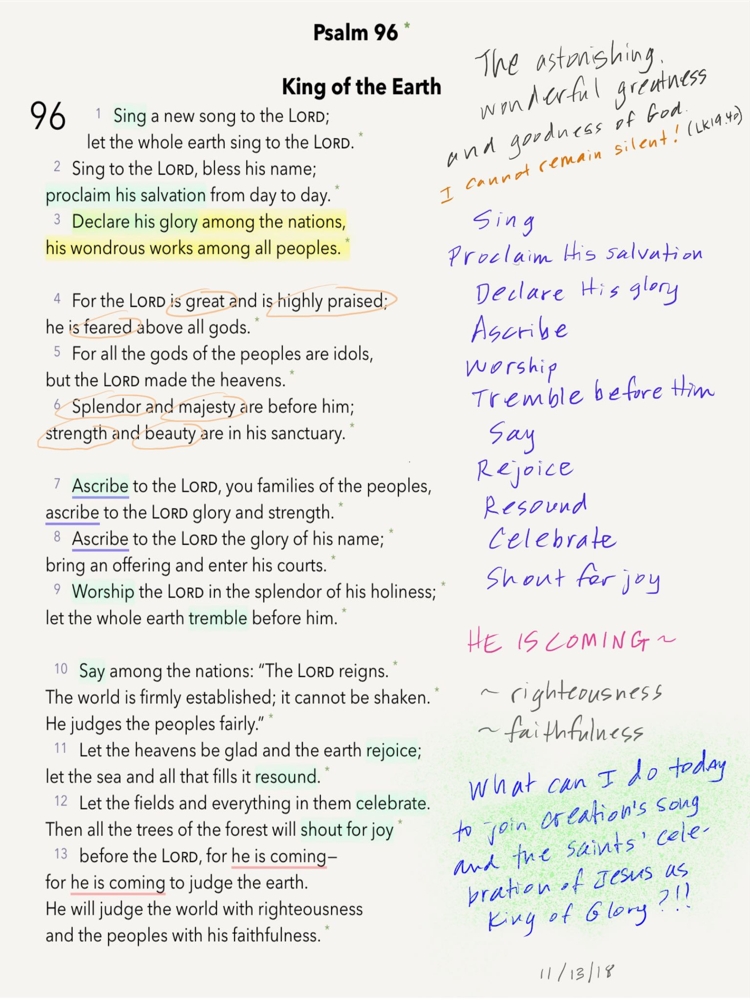 Psalm 96 *
King of the Earth
96
1 Sing a new song to the LORD;
let the whole earth sing to the LORD. *
2 Sing to the LORD, bless his name;
proclaim his salvation from day to day. *
3 Declare his glory among the nations,
his wondrous works among all peoples. *
4 For the LORD is great and is highly praised;
he is feared above all gods. *
5 For all the gods of the peoples are idols,
but the LORD made the heavens. *
6 Splendor and majesty are before him;
strength and beauty are in his sanctuary. *
7 Ascribe to the LORD, you families of the peoples,
ascribe to the LORD glory and strength. *
8 Ascribe to the LORD the glory of his name; *
bring an offering and enter his courts. *
9 Worship the LORD in the splendor of his holiness; *
let the whole earth tremble before him. *
10 Say among the nations: “The LORD reigns. *
The world is firmly established; it cannot be shaken. *
He judges the peoples fairly.” *
11 Let the heavens be glad and the earth rejoice;
let the sea and all that fills it resound. *
12 Let the fields and everything in them celebrate.
Then all the trees of the forest will shout for joy *
13 before the LORD, for he is coming—
for he is coming to judge the earth.
He will judge the world with righteousness
and the peoples with his faithfulness. *
The astonishing,
wonderful greatness
and goodness of God.
I cannot remain silent! (LK 19.40)
Sing
Proclaim His salvation
Declare His glory
Ascribe
Worship
Tremble before Him
Say
Rejoice
Resound
Celebrate
Shout for joy
HE IS COMING ~
~ righteousness
~ faithfulness
What can I do today
to join creation's song
and the saints' cele-
bration of Jesus as
King of Glory?!!
11/13/18